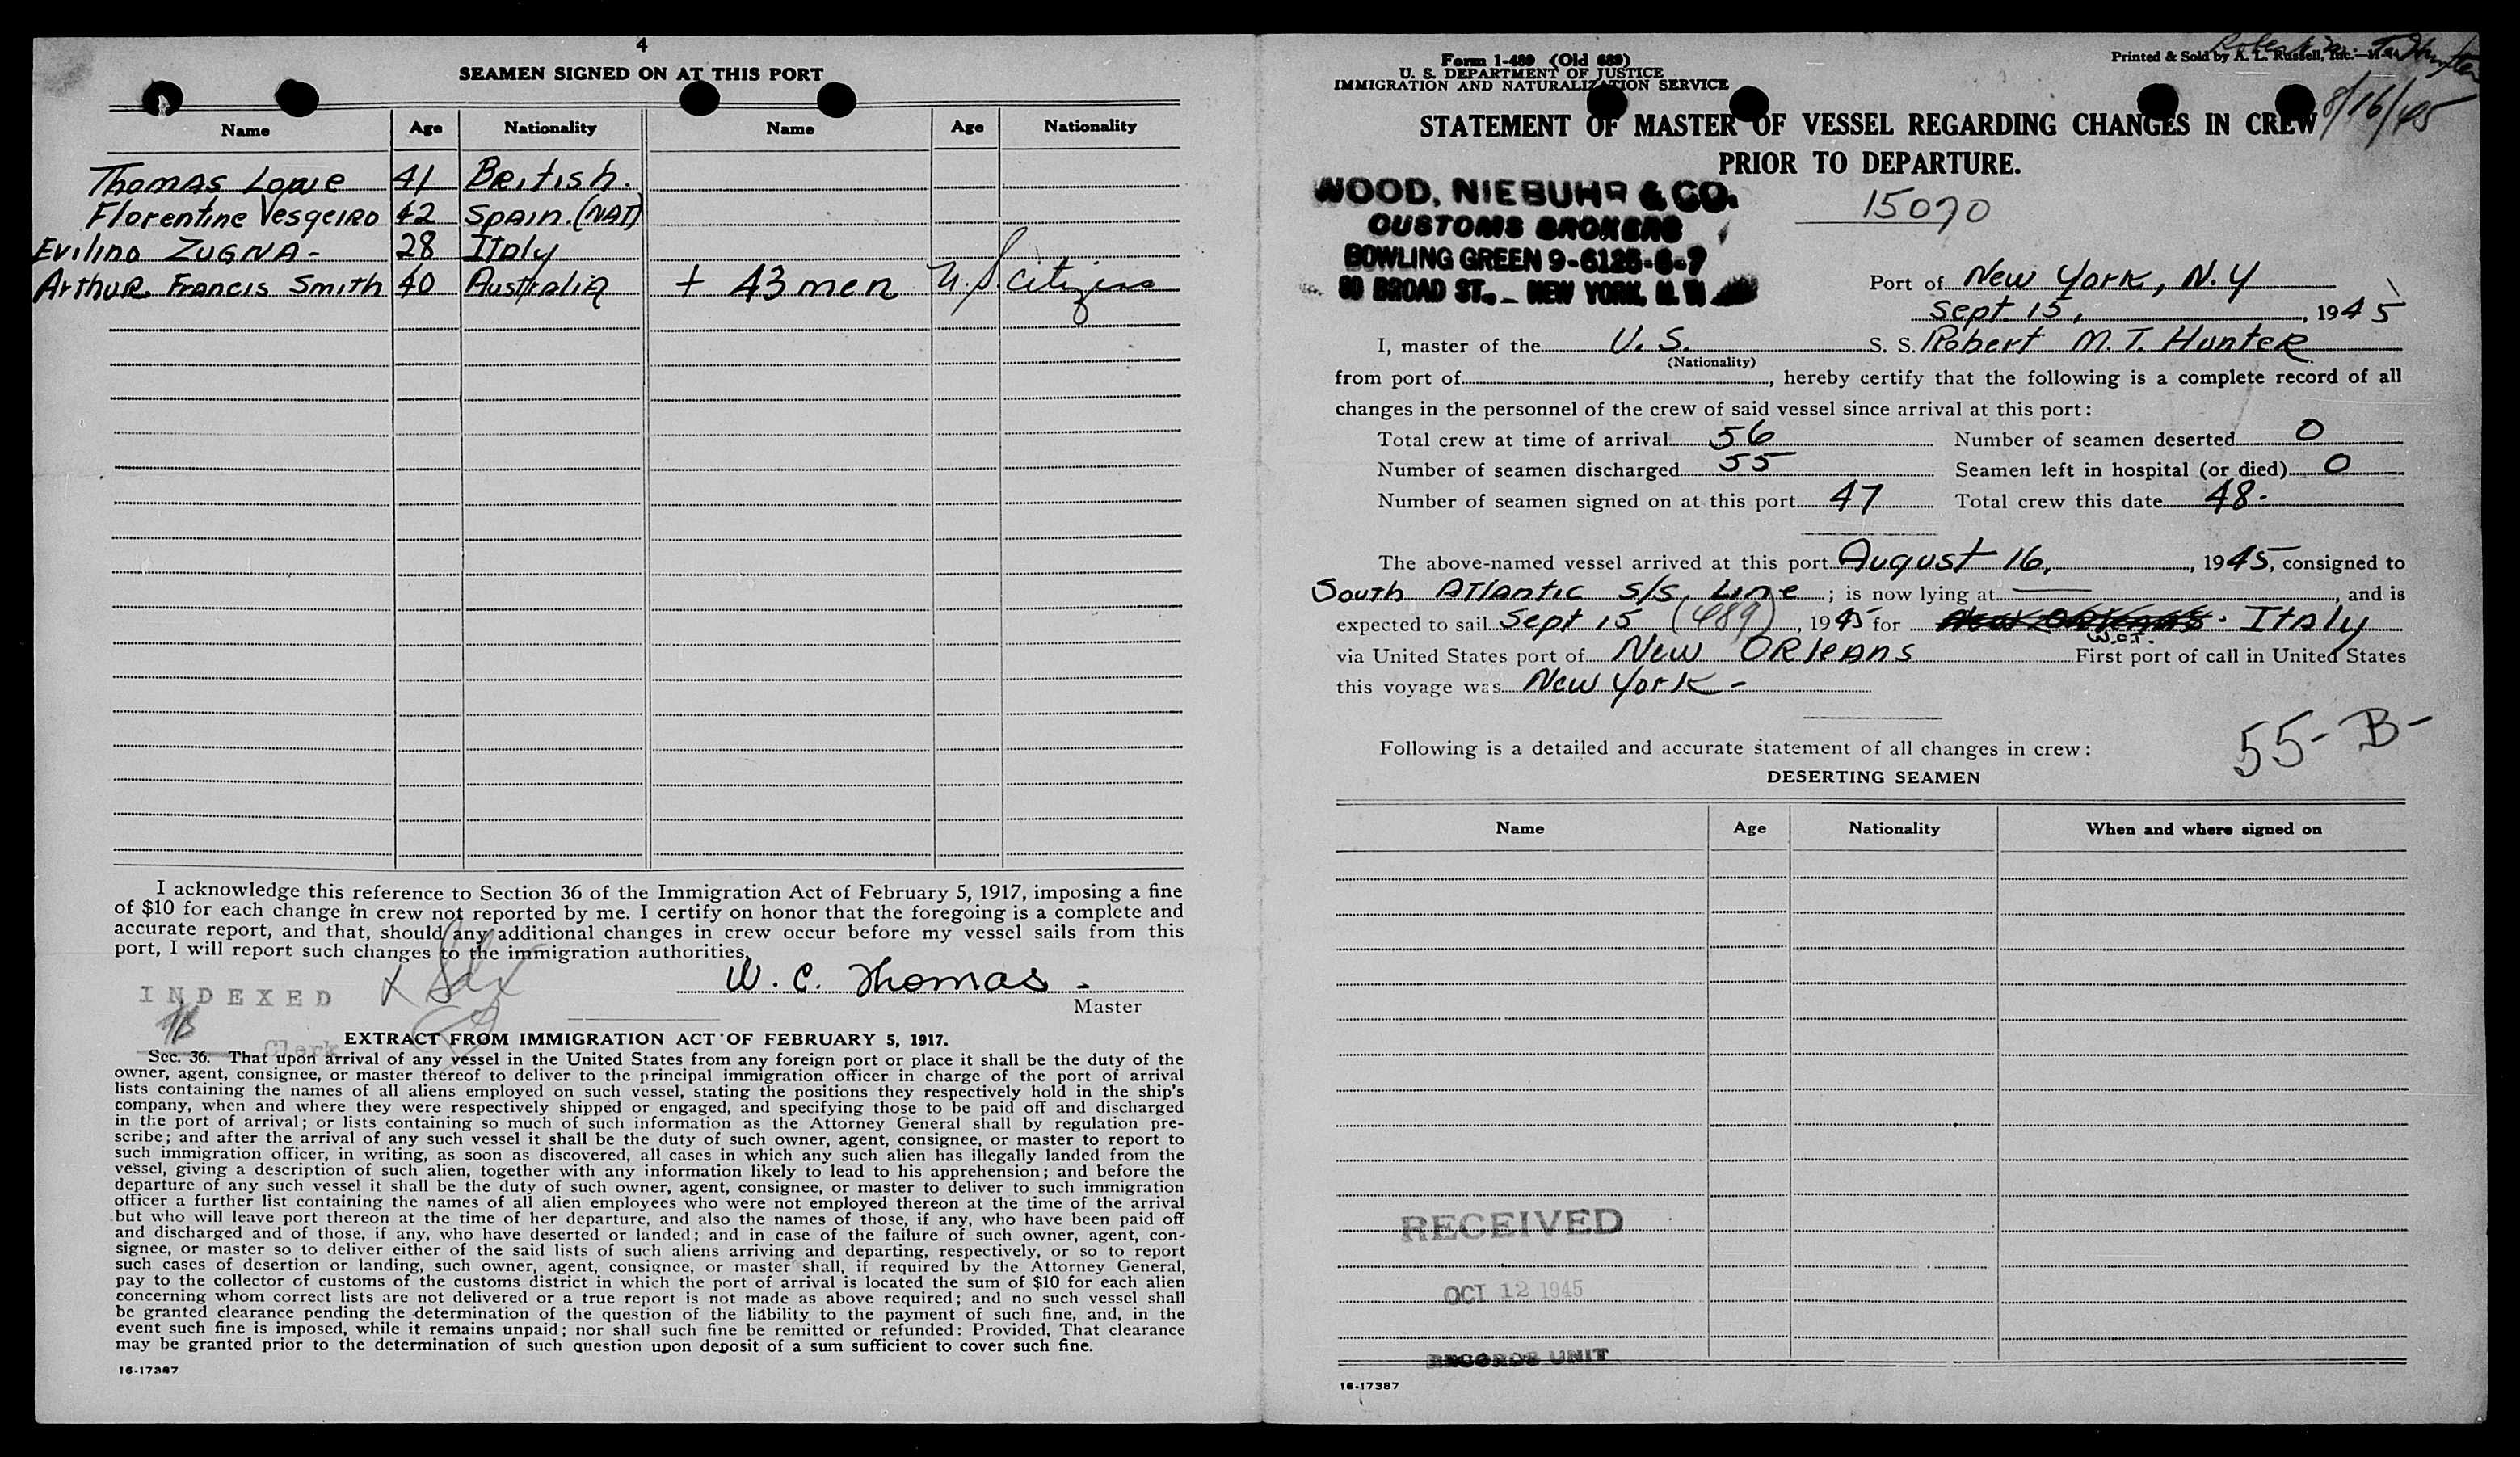 4
SEAMEN SIGNED ON AT THIS PORT
Name Age Nationality Name Age Nationality
Thomas Lowe 41 British.
Florentine Vesqeiro 42 Spain. (NAT)
Evilino ZUGNA - 28 Italy
Arthur Francis Smith 40 Australia + 43 men U.S. citizens
I acknowledge this reference to Section 36 of the Immigration Act of February 5, 1917, imposing a fine
of $10 for each change in crew not reported by me. I certify on honor that the foregoing is a complete and
accurate report, and that, should any additional changes in crew occur before my vessel sails from this
port, I will report such changes to the immigration authorities.
W. C. Thomas.
Master
INDEXED
Clerk
EXTRACT FROM IMMIGRATION ACT OF FEBRUARY 5, 1917.
Sec. 36. That upon arrival of any vessel in the United States from any foreign port or place it shall be the duty of the
owner, agent, consignee, or master thereof to deliver to the principal immigration officer in charge of the port of arrival
lists containing the names of all aliens employed on such vessel, stating the positions they respectively hold in the ship's
company, when and where they were respectively shipped or engaged, and specifying those to be paid off and discharged
in the port of arrival; or lists containing so much of such information as the Attorney General shall by regulation pre-
scribe; and after the arrival of any such vessel it shall be the duty of such owner, agent, consignee, or master to report to
such immigration officer, in writing, as soon as discovered, all cases in which any such alien has illegally landed from the
vessel, giving a description of such alien, together with any information likely to lead to his apprehension; and before the
departure of any such vessel it shall be the duty of such owner, agent, consignee, or master to deliver to such immigration
officer a further list containing the names of all alien employees who were not employed thereon at the time of the arrival
but who will leave port thereon at the time of her departure, and also the names of those, if any, who have been paid off
and discharged and of those, if any, who have deserted or landed; and in case of the failure of such owner, agent, con-
signee, or master so to deliver either of the said lists of such aliens arriving and departing, respectively, or so to report
such cases of desertion or landing, such owner, agent, consignee, or master shall, if required by the Attorney General,
pay to the collector of customs of the customs district in which the port of arrival is located the sum of $10 for each alien
concerning whom correct lists are not delivered or a true report is not made as above required; and no such vessel shall
be granted clearance pending the determination of the question of the liability to the payment of such fine, and, in the
event such fine is imposed, while it remains unpaid; nor shall such fine be remitted or refunded: Provided, That clearance
may be granted prior to the determination of such question upon deposit of a sum sufficient to cover such fine.
16-17387
Form 1-489 (Old 689)
U. S. DEPARTMENT OF JUSTICE
IMMIGRATION AND NATURALIZATION SERVICE
Printed & Sold by A. L. Russell, Inc.
8/16/45
STATEMENT OF MASTER OF VESSEL REGARDING CHANGES IN CREW
PRIOR TO DEPARTURE.
WOOD, NIEBUHR & CO.
CUSTOMS BROKERS
BOWLING GREEN 9-6125-6-7
80 BROAD ST., - NEW YORK, N. Y.
15070
Port of New York, N.Y
Sept. 15, , 1945
I, master of the U. S. S. S. Robert M. T. Hunter
(Nationality)
from port of , hereby certify that the following is a complete record of all
changes in the personnel of the crew of said vessel since arrival at this port:
Total crew at time of arrival 56 Number of seamen deserted 0
Number of seamen discharged 55 Seamen left in hospital (or died) 0
Number of seamen signed on at this port 47 Total crew this date 48-
The above-named vessel arrived at this port August 16, , 1945, consigned to
South Atlantic S/S. Line ; is now lying at , and is
expected to sail Sept 15 (489) , 1945 for Italy
W.C.T.
via United States port of New Orleans First port of call in United States
this voyage was New York -
55-B-
Following is a detailed and accurate statement of all changes in crew:
DESERTING SEAMEN
Name Age Nationality When and where signed on
RECEIVED
OCT 12 1945
RECORDS UNIT
16-17387